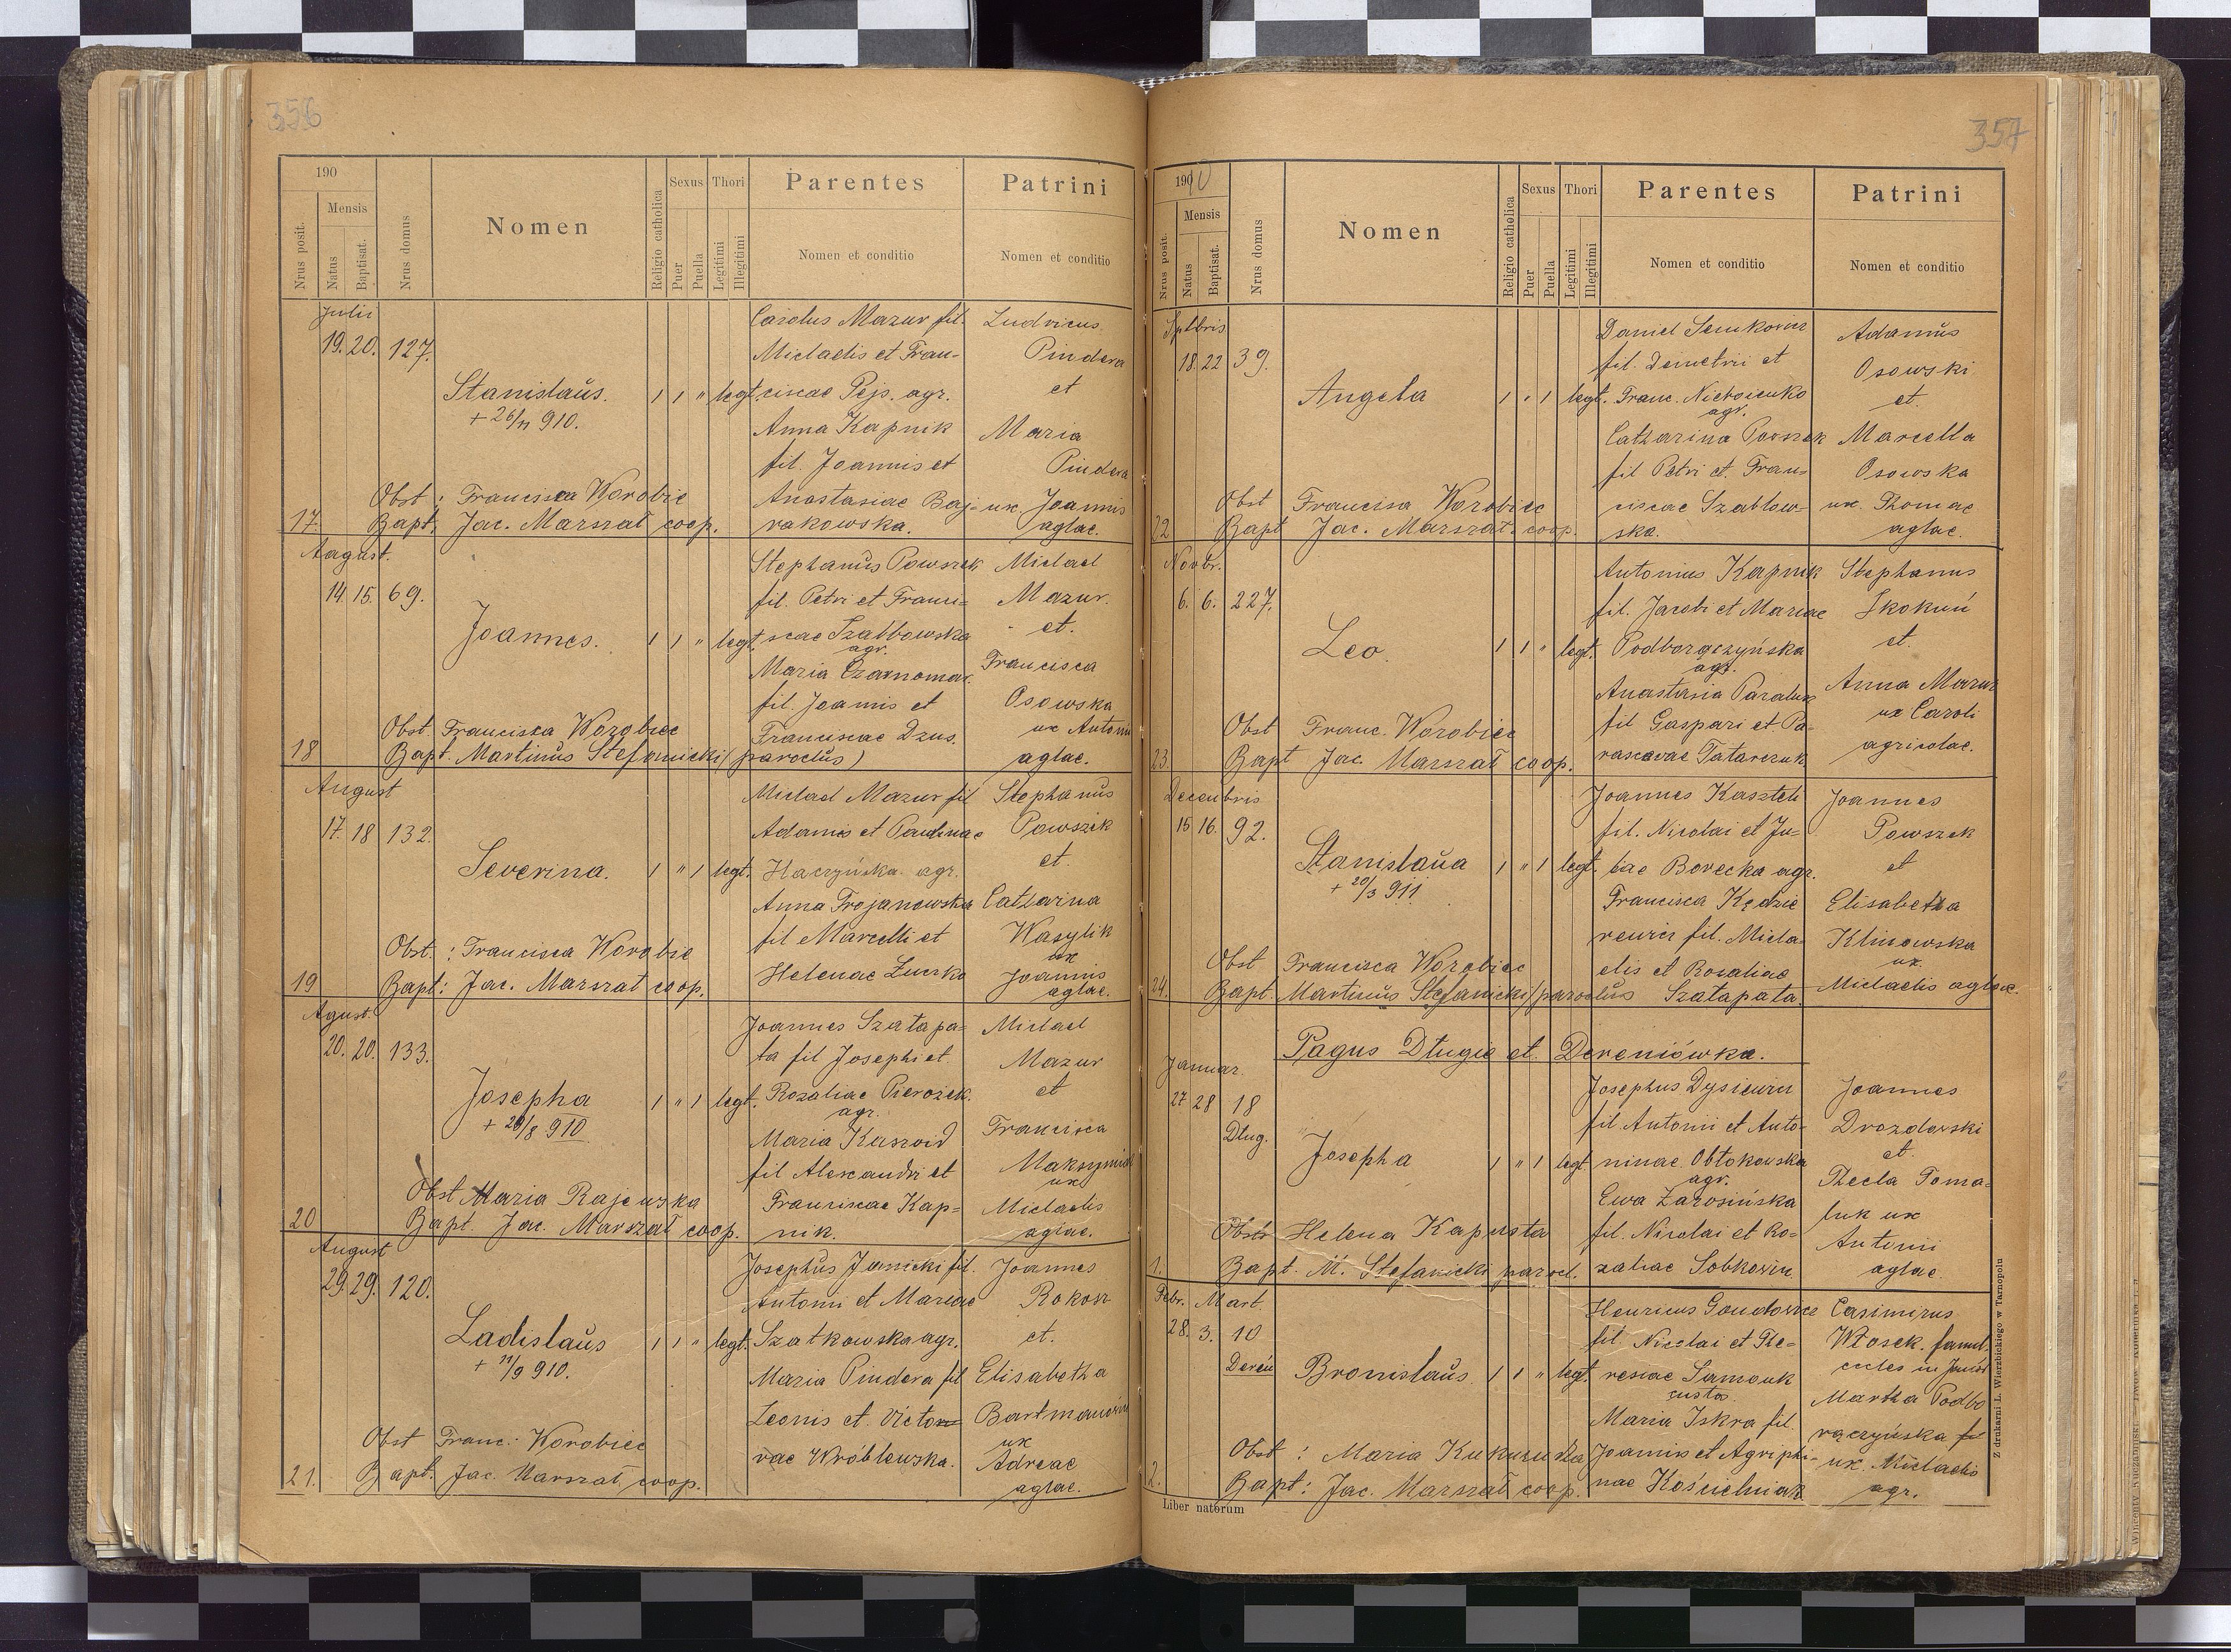 356
190
Nrus posit.
Mensis
Natus
Baptisat.
Nrus domus
Nomen
Religio catholica
Sexus
Puer
Puella
Thori
Legitimi
Illegitimi
Parentes
Nomen et conditio
Patrini
Nomen et conditio
Julii
19. 20. 127.
Stanislaus. 1 1 " legt.
+ 26/11 910.
Obst: Francisca Worobiec
17. Bapt: Jac. Marszał coop.
Carolus Mazur fil.
Michaelis et Fran-
ciscae Pejs. agr.
Anna Kapnik
fil. Joannis et
Anastasiae Baj-
rakowska.
Ludvicus
Pindera
et
Maria
Pindera
ux. Joannis
aglae.
August.
14. 15. 69.
Joannes. 1 1 " legt.
Obst. Francisca Worobiec
18 Bapt. Martinus Stefanicki (parochus)
Stephanus Powszek
fil. Petri et Franci-
scae Szabłowska
agr.
Maria Czarnomaz.
fil. Joannis et
Franciscae Dzus.
Michael
Mazur.
et.
Francisca
Osowska
ux Antonii
aglae.
August
17. 18 132.
Severina. 1 " 1 legt.
Obst.: Francisca Worobiec
19 Bapt: Jac. Marszał coop.
Michael Mazur fil
Adamis et Paulinae
Haczyńska agr.
Anna Trojanowska
fil Marcelli et
Helenae Żuczko
Stephanus
Powszek
et.
Catharina
Wasylik
ux
Joannis
aglae.
Agust.
20. 20. 133.
Josepha 1 " 1 legt.
+ 26/8 910
Obst Maria Rajewska
20 Bapt. Jac. Marszał coop.
Joannes Szałapa-
ta fil Josephi et
Rozaliae Pierożek.
agr.
Maria Kaszoid
fil Alexandri et
Franciscae Kap-
nik.
Michael
Mazur
et
Francisca
Maksymiw
ux
Michaelis
aglae.
August
29. 29. 120.
Ladislaus 1 1 " legt.
+ 11/9 910.
Obst Franc: Worobiec
21. Bapt. Jac. Marszał coop.
Josephus Janicki fil.
Antonii et Mariae
Szatkowska agr.
Maria Pindera fil
Leonis et Victo
rae Wróblewska.
Joannes
Rokosz
et.
Elisabetha
ux
Adreae
aglae.
357
1910
Nrus posit.
Mensis
Natus
Baptisat.
Nrus domus
Nomen
Religio catholica
Sexus
Puer
Puella
Thori
Legitimi
Illegitimi
Parentes
Nomen et conditio
Patrini
Nomen et conditio
Sptbris
18. 22 39.
Angela 1 " 1 legt.
Obst Francisca Worobiec
22 Bapt Jac. Marszał coop.
Daniel Senkowicz
fil. Demetrii et
Franc.
agr.
Catharina Powszek
fil Petri et Fran-
ciscae Szabłow-
ska.
Adamus
Osowski
et.
Marcella
Osowska
ux. Thomae
aglae.
Novbr.
6. 6. 227.
Leo. 1 1 " legt.
Obst Franc. Worobiec
23. Bapt Jac. Marszał coop.
Antonius Kapnik
fil. Jacobi et Mariae
Podborączyńska
agr.
Anastasia Paraluk
fil Gaspari et Pa-
rascevae Tatarczuk
Stephanus
Skokuń
et.
Anna Mazur
ux Caroli
agricolae.
Decembris
15 16. 92.
Stanislaua 1 " 1 legt.
+ 20/3 911.
Obst Francisca Worobiec
24. Bapt. Martinus Stefanicki (parochus
Joannes Kasztel
fil. Nicolai et Ju-
liae Borecka agr.
Francisca Kędzie
fil. Micha-
elis et Rosaliae
Szałapata.
Joannes
Powszek
et
Elisabetha
Klinowska
ux.
Michaelis aglae.
Pagus Długie et Dereniówka.
Januar.
27 28 18
Dług.
Josepha 1 " 1 legt
Obst Helena Kapusta
1. Bapt. M. Stefanicki paroch.
Josephus
fil. Antonii et Anto-
ninae Obtokowska
agr.
Ewa Zarosińska
fil. Nicolai et Ro-
zaliae Sobkowicz
Joannes
Drozdowski
et.
Thecla Toma-
luk ux
Antonii
aglae.
Febr. Mart.
28. 3. 10
Dereń
Bronislaus. 1 1 " legt.
Obst: Maria Kukurudza
2. Bapt: Jac. Marszał coop.
Henricus
fil. Nicolai et The-
resiae Sumouk
custos
Maria Iskra fil.
Joannis et Agriphi-
nae Kośnelniak
Casimirus
Włosek. famul.
Martha Podbo
rączyńska
ux. Michaelis
agr.
Liber natorum
Z drukarni L. Wierzbickiego w Tarnopolu